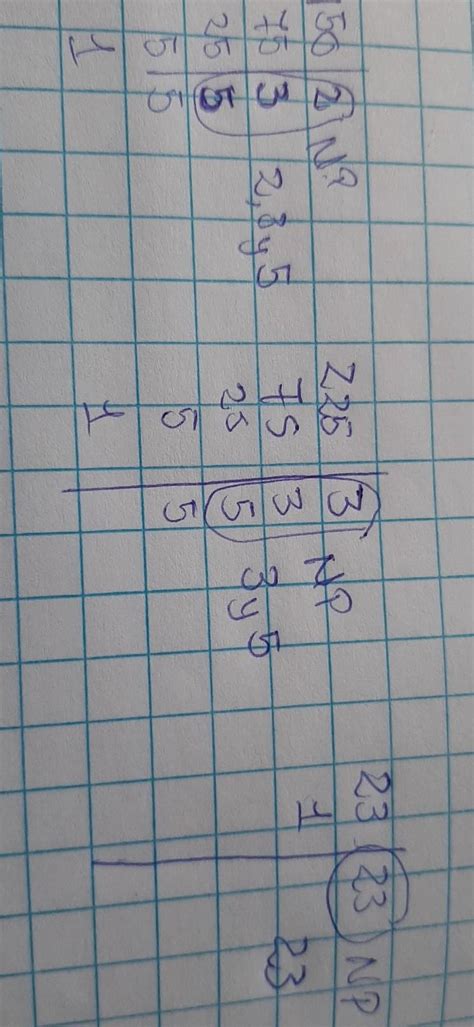 150 | 2 NP
75 | 3 2, 3 y 5
25 | 5
5 | 5
1
225 | 3 NP
75 | 3 3 y 5
25 | 5
5 | 5
1
23 | 23 NP
1 | 23